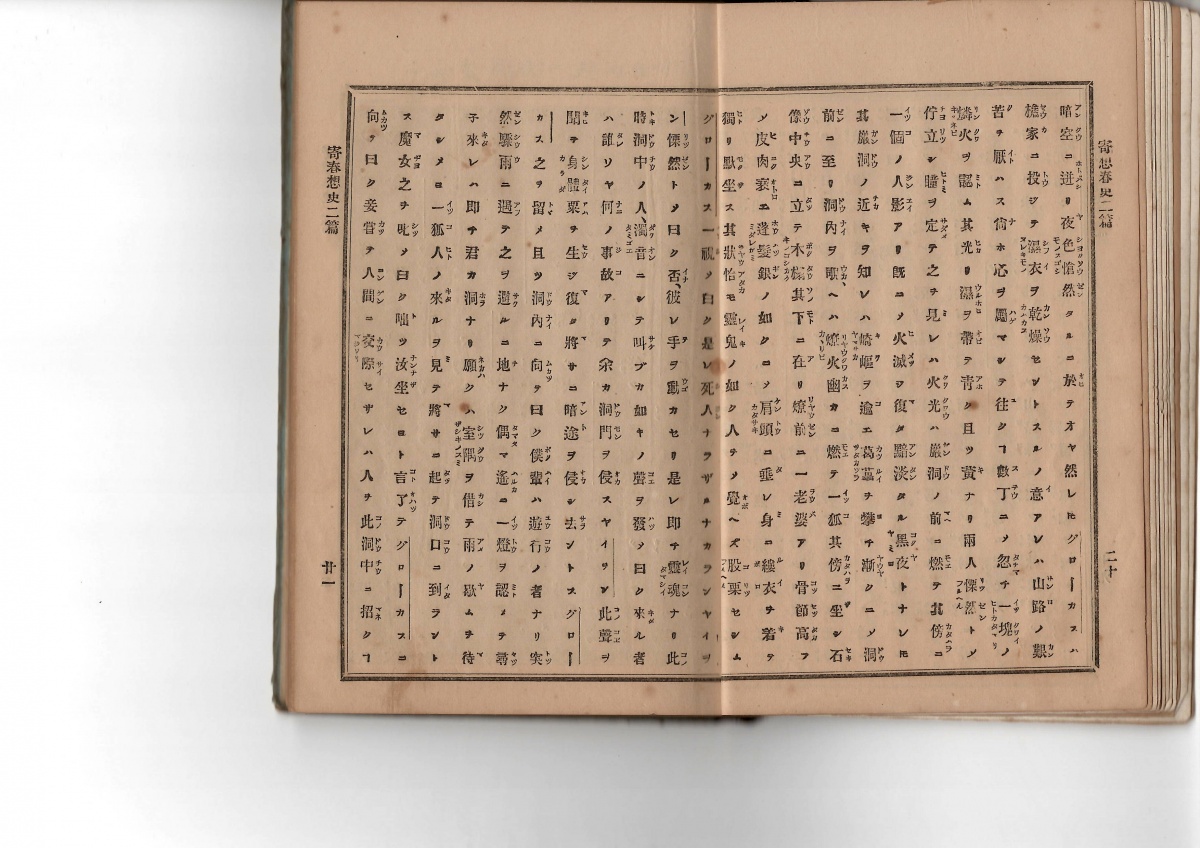 寄想春史二篇
二十
暗空ニ迸リ夜色愴然タルニ於テオヤ然レ𪜈グローカスハ
檐家ニ投シテ濕衣ヲ乾燥セントスルノ意アレハ山路ノ艱
苦ヲ厭ハス尙ホ心ヲ勵マシテ往クヿ數丁ニメ忽チ一塊ノ
燐火ヲ認ム其光リ濕ヲ帶テ靑ク且ツ黃ナリ兩人慄然トメ
佇立シ瞳ヲ定テ之ヲ見レハ火光ハ巖洞ノ前ニ燃テ其傍ニ
一個ノ人影アリ旣ニメ火滅ヲ復タ黯淡タル黑夜トナレ𪜈
其巖洞ノ近キヲ知レハ崎嶇ヲ逾エ葛藟ヲ攀チ漸クニメ洞
前ニ至リ洞內ヲ瞰ヘハ燎火幽カニ燃テ一狐其傍ニ坐シ石
像中央ニ立テ木𣖾其下ニ在リ燎前ニ一老婆アリ骨節高フ
メ皮肉衰エ蓬髮銀ノ如クニメ肩頭ニ垂レ身ニ縷衣ヲ着テ
獨リ默坐ス其狀恰モ靈鬼ノ如ク人テメ覺ヘズ股栗セシム
グローカス一視メ曰ク是レ死人ナラザルナカランヤイヲ
ン慄然トメ曰ク否、彼レ手ヲ動カセリ是レ即チ靈魂ナリ此
時洞中ノ人、濁音ニシテ叫ブカ如キノ聲ヲ發メ曰ク來ル者
ハ誰ソヤ何ノ事故アリテ余カ洞門ヲ侵スヤイヲン此聲ヲ
聞テ身體粟ヲ生シ復タ將サニ暗途ヲ侵シ去ントスグロー
カス之ヲ留メ且ツ洞內ニ向ヲ曰ク僕輩ハ遊行ノ者ナリ突
然驟雨ニ遇テ之ヲ避ルニ地ナク偶マ遙ニ一燈ヲ認メテ尋
子來レハ即チ君カ洞ナリ願クハ室隅ヲ借テ雨ノ歇ムヲ待
タシメヨ一狐人ノ來ルヲ見テ將サニ起テ洞口ニ到ラント
ス魔女之ヲ叱メ曰ク咄ツ汝坐セヨト言了テグローカスニ
向ヲ曰ク妾嘗テ人間ニ交際セザレハ人ヲ此洞中ニ招クヿ
寄春想史二篇
廿一